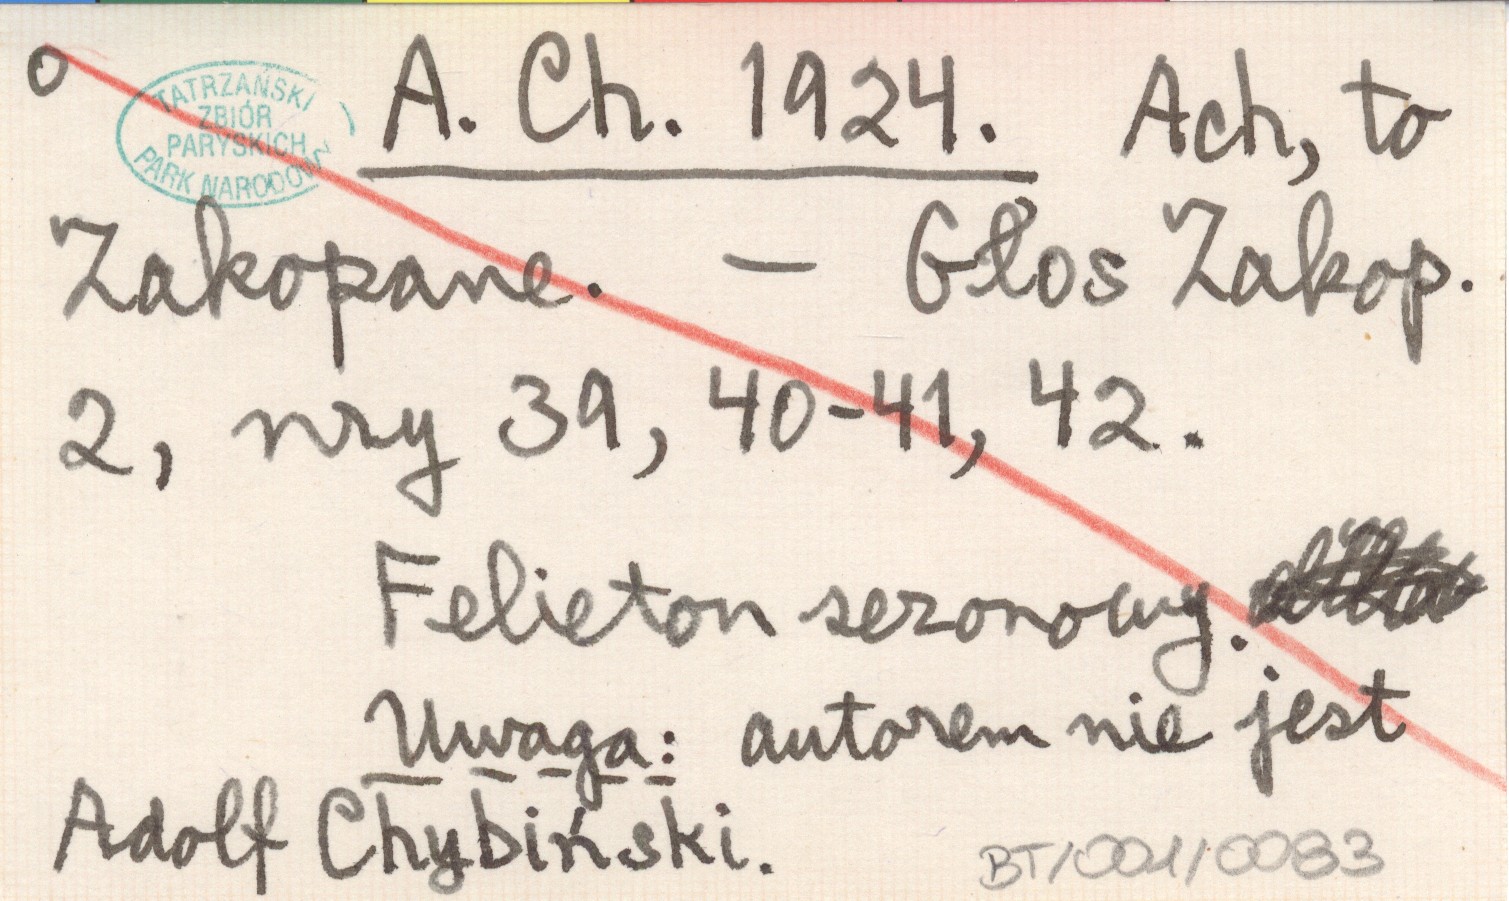 o A. Ch. 1924. Ach, to
TATRZAŃSKI
ZBIÓR
PARYSKICH
PARK NARODOWY
Zakopane. — Głos Zakop.
2, nry 39, 40-41, 42.
Felieton sezonowy.
Uwaga: autorem nie jest
Adolf Chybiński.
BT/001/0083